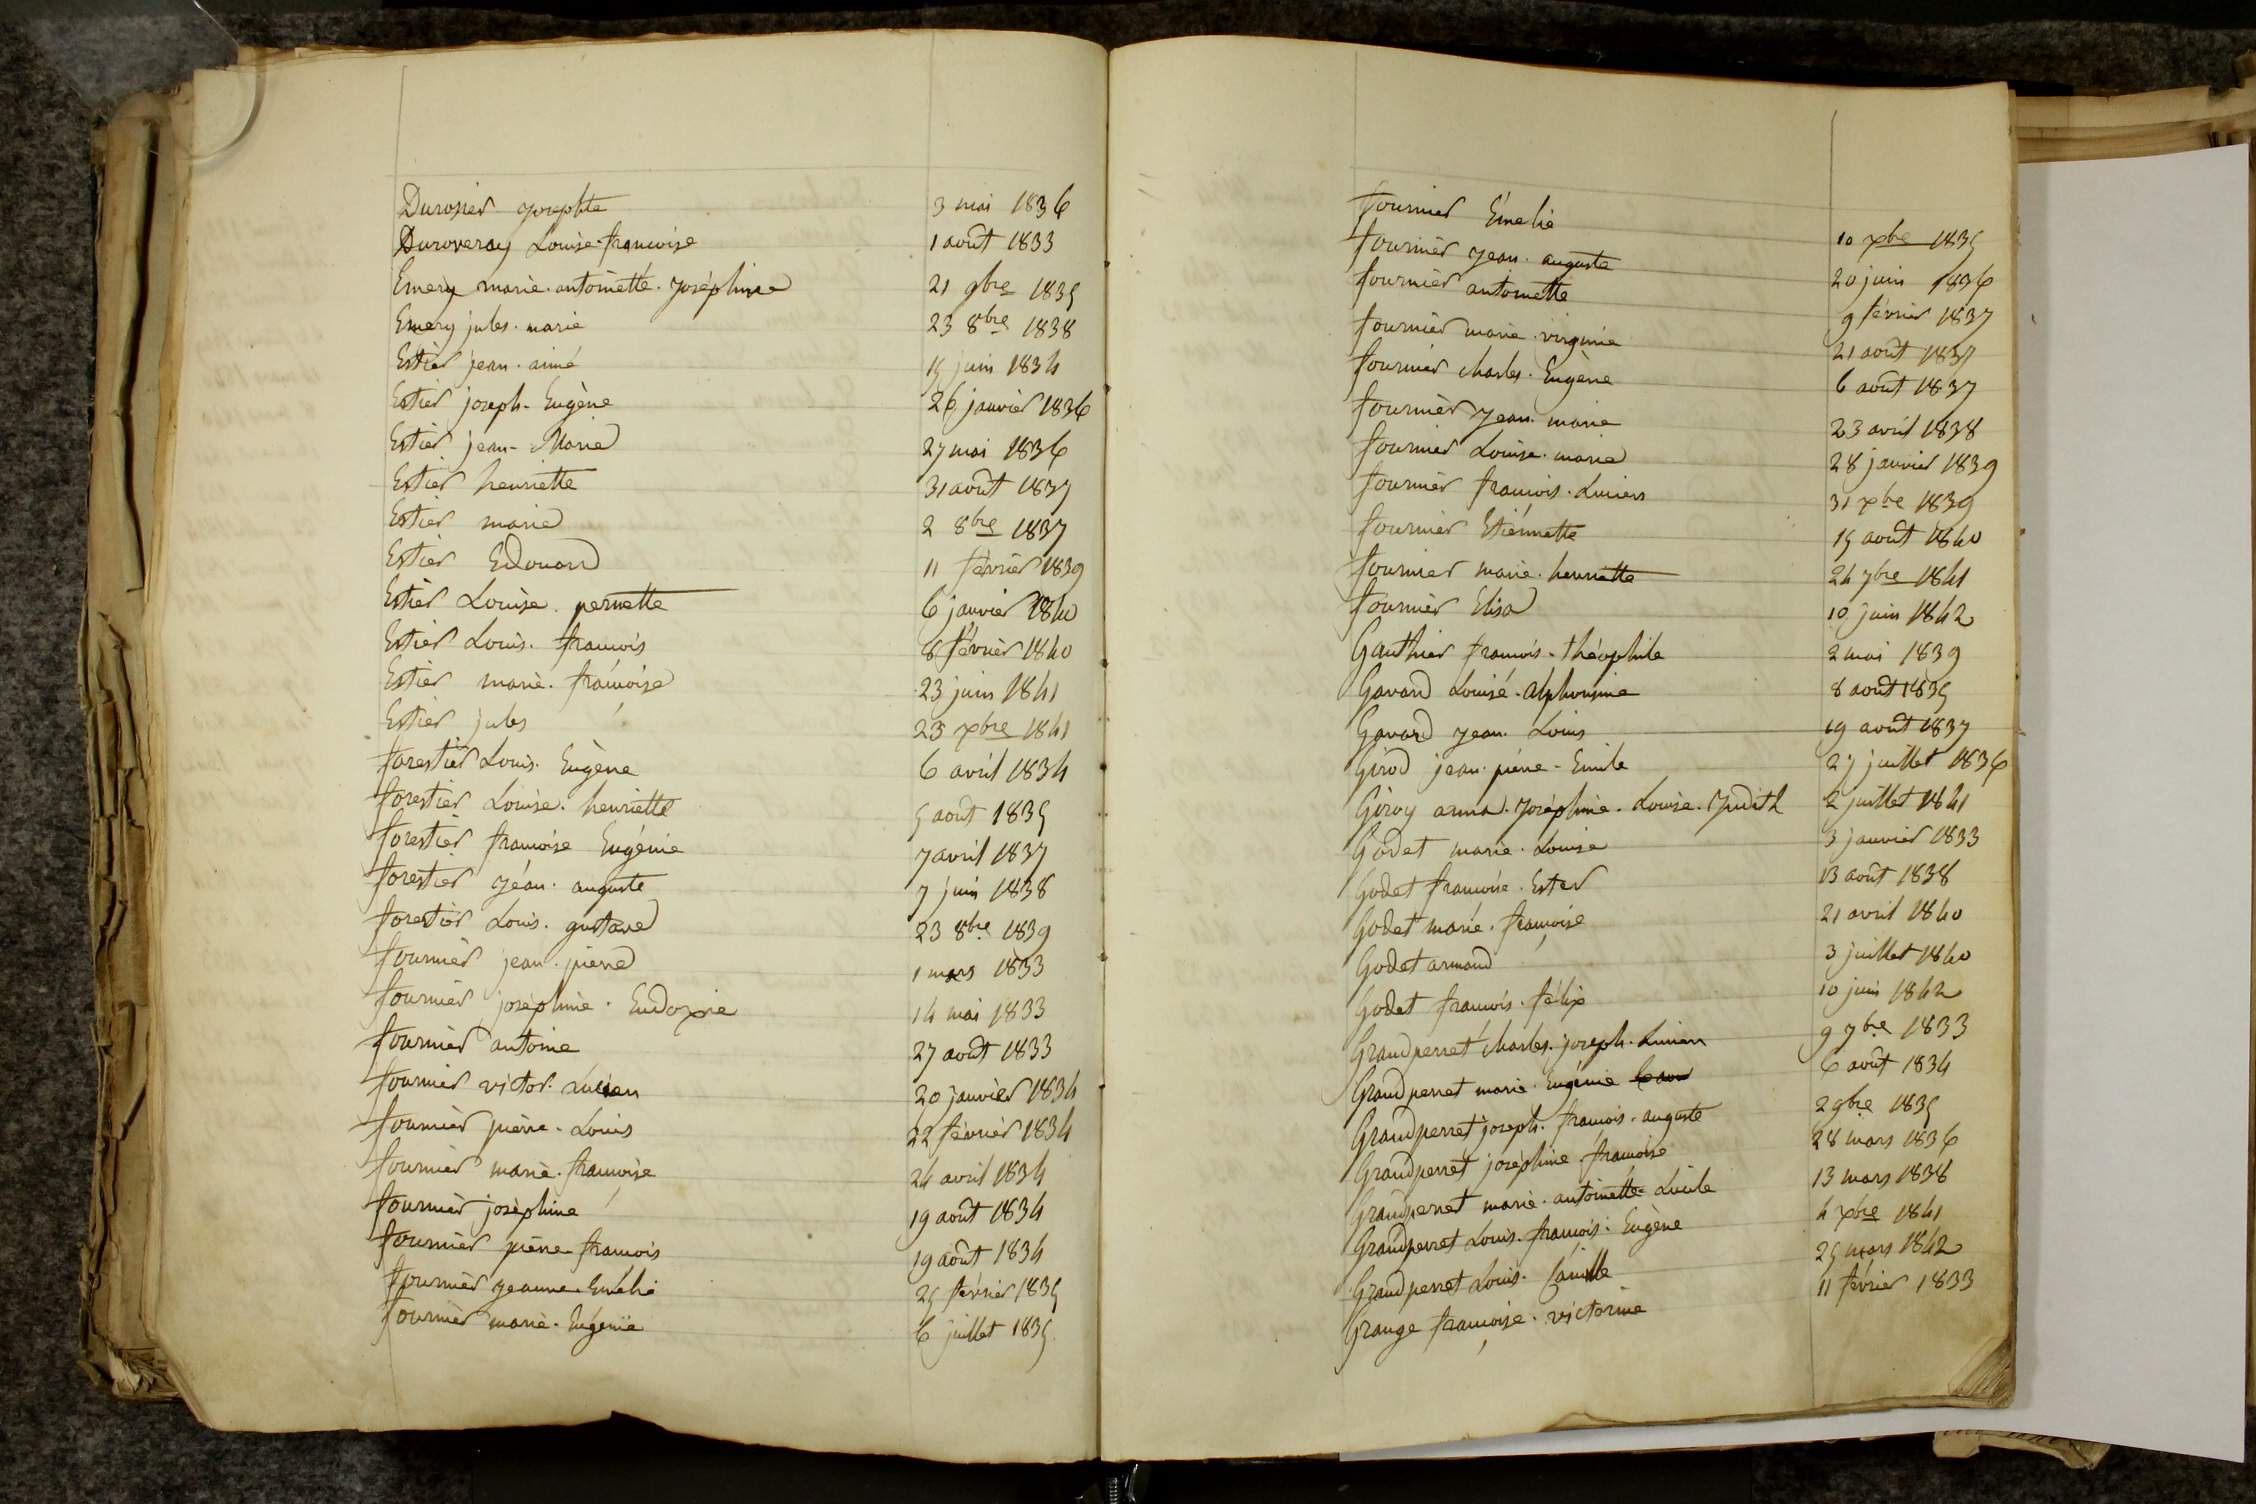 Durosier josephte 3 mai 1836
Duroveray Louise-françoise 1 août 1833
Emery marie. antoinette. joséphine 21 9bre 1835
Emery jules. marie 23 8bre 1838
Estier jean. aimé 15 juin 1834
Estier joseph-Eugène 26 janvier 1836
Estier jean-Marie 27 mai 1836
Estier henriette 31 août 1837
Estier marie 2 8bre 1837
Estier Edouard 11 février 1839
Estier Louise. pernette 6 janvier 1840
Estier Louis. françois 8 février 1840
Estier marie. françoise 23 juin 1841
Estier jules 23 xbre 1841
forestier Louis. Eugène 6 avril 1834
forestier Louise. henriette 5 août 1835
forestier françoise Eugénie 7 avril 1837
forestier jéan. auguste 7 juin 1838
forestier Louis. gustave 23 8bre 1839
fournier jean. pierre 1 mars 1833
fournier joséphine. Eudoxie 14 mai 1833
fournier antoine 27 août 1833
fournier victor. Lucien 20 janvier 1834
fournier pierre. Louis 22 février 1834
fournier marie. françoise 24 avril 1834
fournier joséphine 19 août 1834
fournier pierre françois 19 août 1834
fournier jeanne. Emélie 25 février 1835
fournier marie. Eugénie 6 juillet 1835
fournier Émelie 10 xbre 1835
fournier jean. auguste 20 juin 1836
fournier antoinette 9 février 1837
fournier marie. virginie 21 août 1837
fournier charles. Eugène 6 août 1837
fournier jean. marie 23 avril 1838
fournier Louise. marie 28 janvier 1839
fournier françois. Lucien 31 xbre 1839
fournier Etiénnette 15 août 1840
fournier marie. henriette 24 7bre 1841
fournier Elisa 10 juin 1842
Gauthier françois-théophile 2 mai 1839
Gavard Louise-alphonsine 8 août 1835
Gavard jean. Louis 19 août 1837
Girod jean. pierre-Emile 27 juillet 1836
Giroy anna. joséphine. Louise. Judith 2 juillet 1841
Godet marie. Louise 3 janvier 1833
Godet françoise. Ester 13 août 1838
Godet marie. françoise 21 avril 1840
Godet armand 3 juillet 1840
Godet françois. félix 10 juin 1842
Grandperret charles. joseph. Lucien 9 7bre 1833
Grandperret marie. Eugénie 6 août 1834
Grandperret joseph. françois. auguste 2 9bre 1835
Grandperret joséphine françoise 28 mars 1836
Grandperret marie. antoinette Lucile 13 mars 1838
Grandperret Louis. françois. Eugène 4 xbre 1841
Grandperret Louis. Camille 25 mars 1842
Grange françoise. victorine 11 février 1833